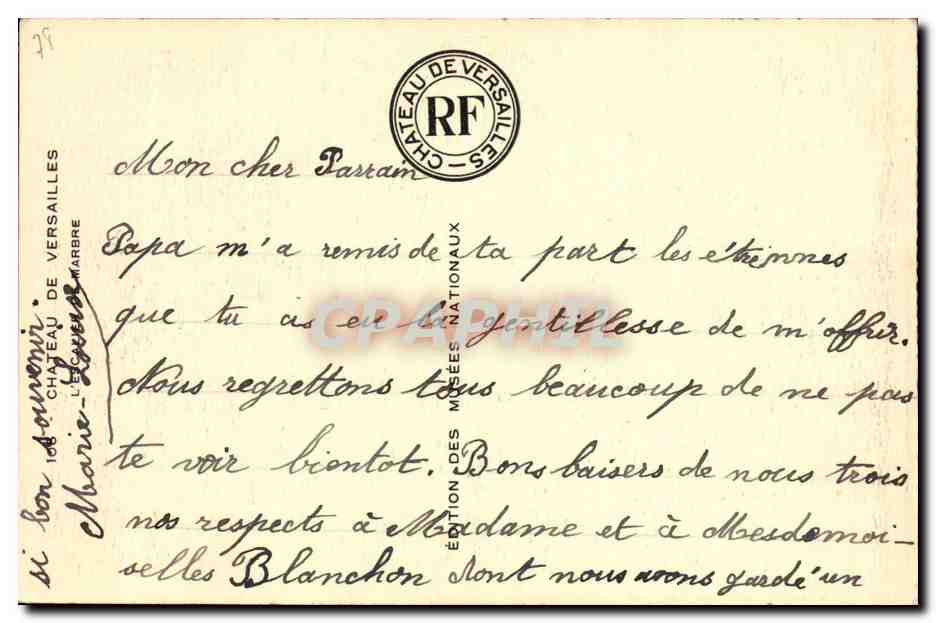 79
CHATEAU DE VERSAILLES
RF
Mon cher Parrain
Papa m'a remis de ta part les étrennes
que tu as eu la gentillesse de m'offrir.
Nous regrettons tous beaucoup de ne pas
te voir bientot. Bons baisers de nous trois
nos respects à Madame et à Mesdemoi-
selles Blanchon dont nous avons gardé un
si bon souvenir.
Marie-Louise
CHATEAU DE VERSAILLES
L'ESCALIER MARBRE
ÉDITION DES MUSÉES NATIONAUX
CPAPHIL